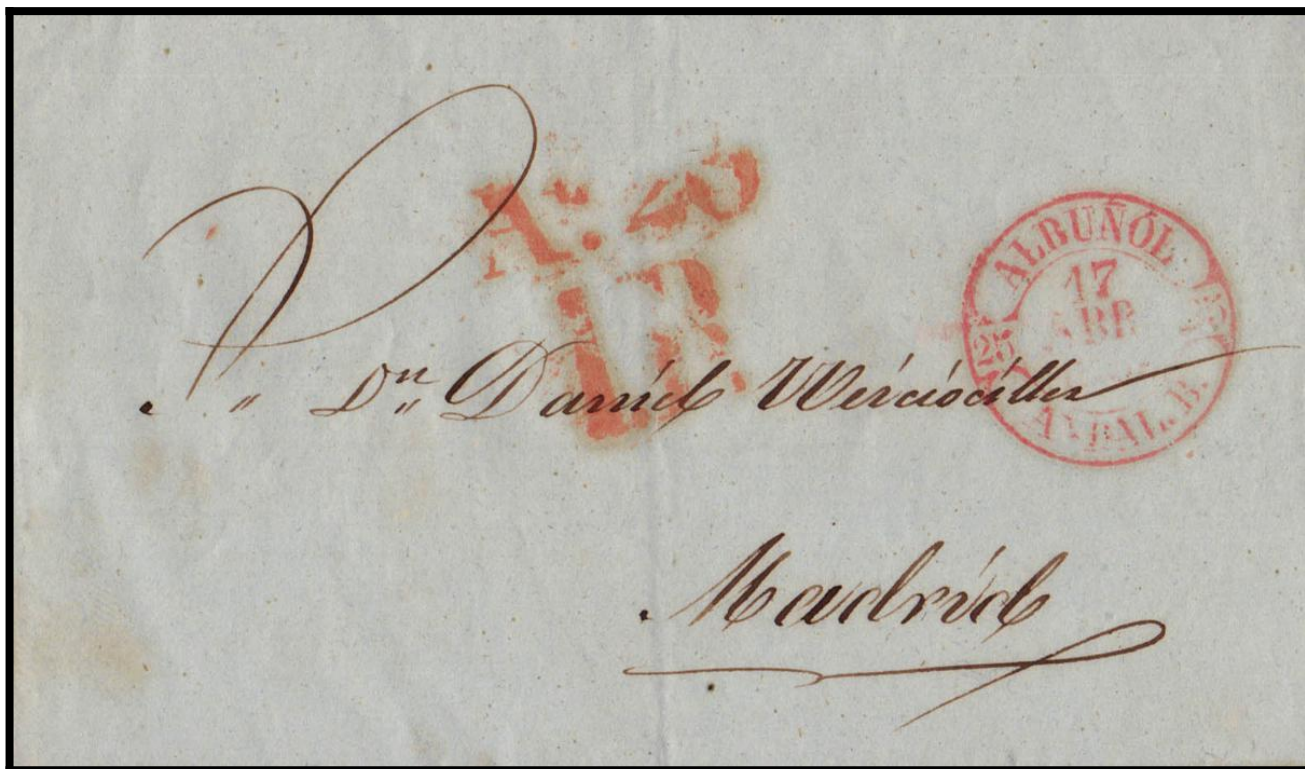 A. 20
1R.
ALBUÑÓL
17
ABR
25
ANDAL. B.
Dn Daniel Weisweiller
Madrid